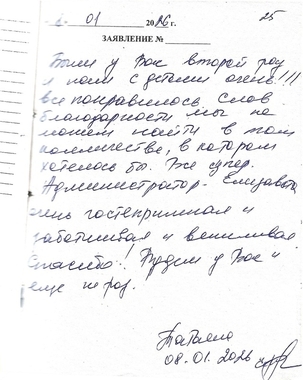 01 2026 г. 25
ЗАЯВЛЕНИЕ №
Были у Вас второй раз
и нам с детьми очень!!!
все понравилось. Слов
благодарности мы не
можем найти в том
колличестве, в котором
хотелось бы. Все супер.
Администратор - Елизавета
очень гостеприимная и
заботливая и вежливая
Спасибо! Будем у Вас и
еще не раз.
Татьяна
08.01.2026